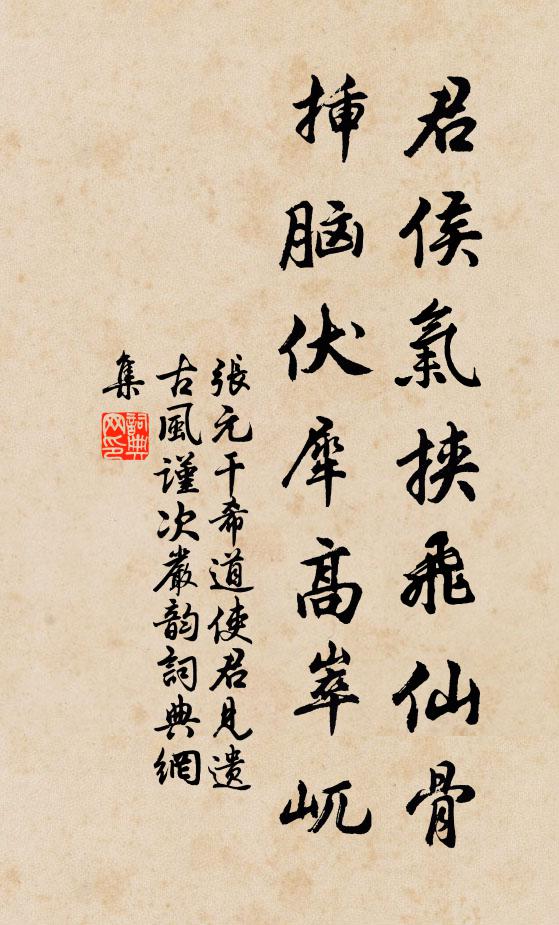 君侯氣挾飛仙骨
插腦伏犀高崒屼
張元干希道使君見遺
古風謹次嚴韵詞典網
集
詞典
网印